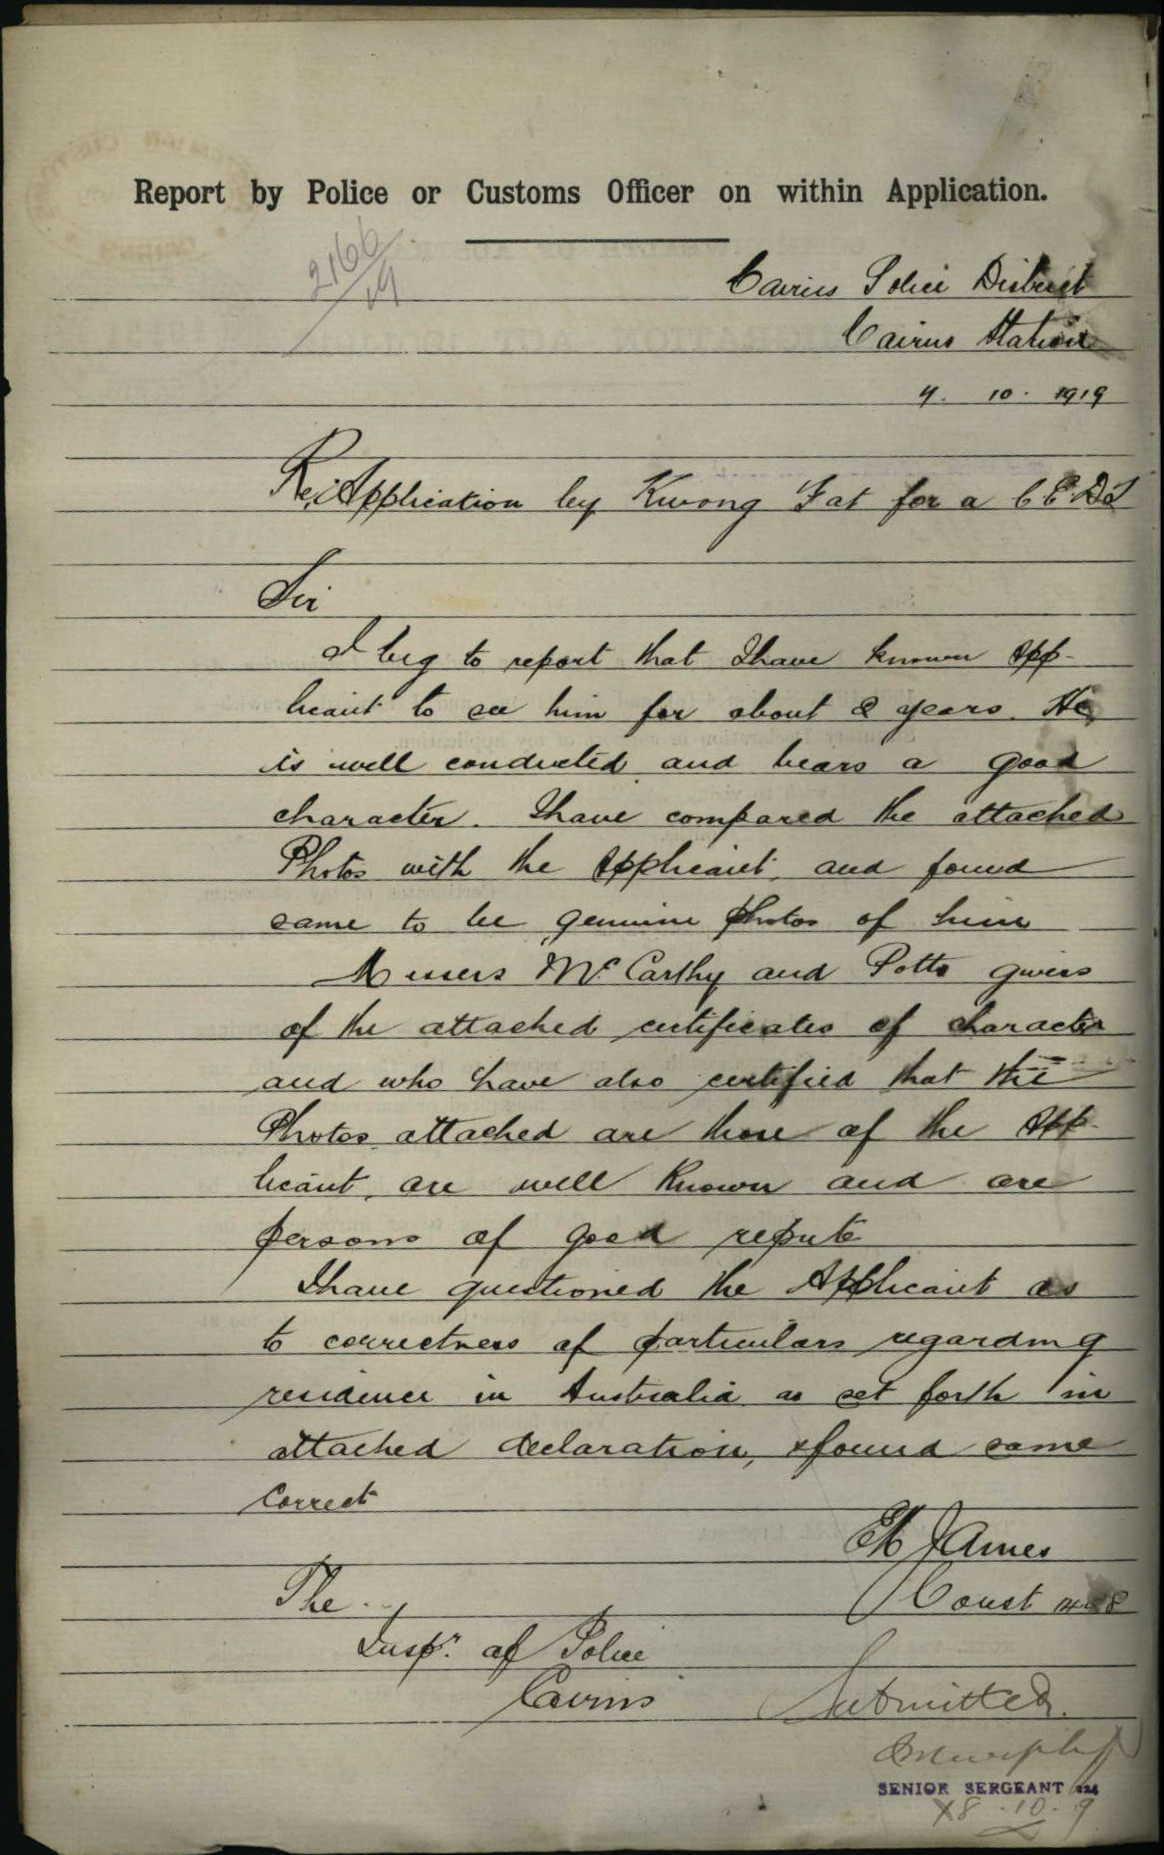 Report by Police or Customs Officer on within Application.
2166
19
Cairns Police District
Cairns Station
10. 1919
Re; Application by Kwong Fat for a C E D T
Sir
I beg to report that I have known App-
licant to see him for about 2 years. He
is well conducted and bears a good
character. I have compared the attached
Photos with the Applicant, and found
same to be genuine photos of him
Messrs McCarthy and Potts givers
of the attached certificates of character
and who have also certified that the
Photos attached are those of the App-
licant, are well known and are
persons of good repute
I have questioned the Applicant as
to correctness of particulars regarding
residence in Australia as set forth in
attached declaration, & found same
correct
James
Const
The
Inspr. of Police
Cairns
Submitted.
SENIOR SERGEANT
8.10.9